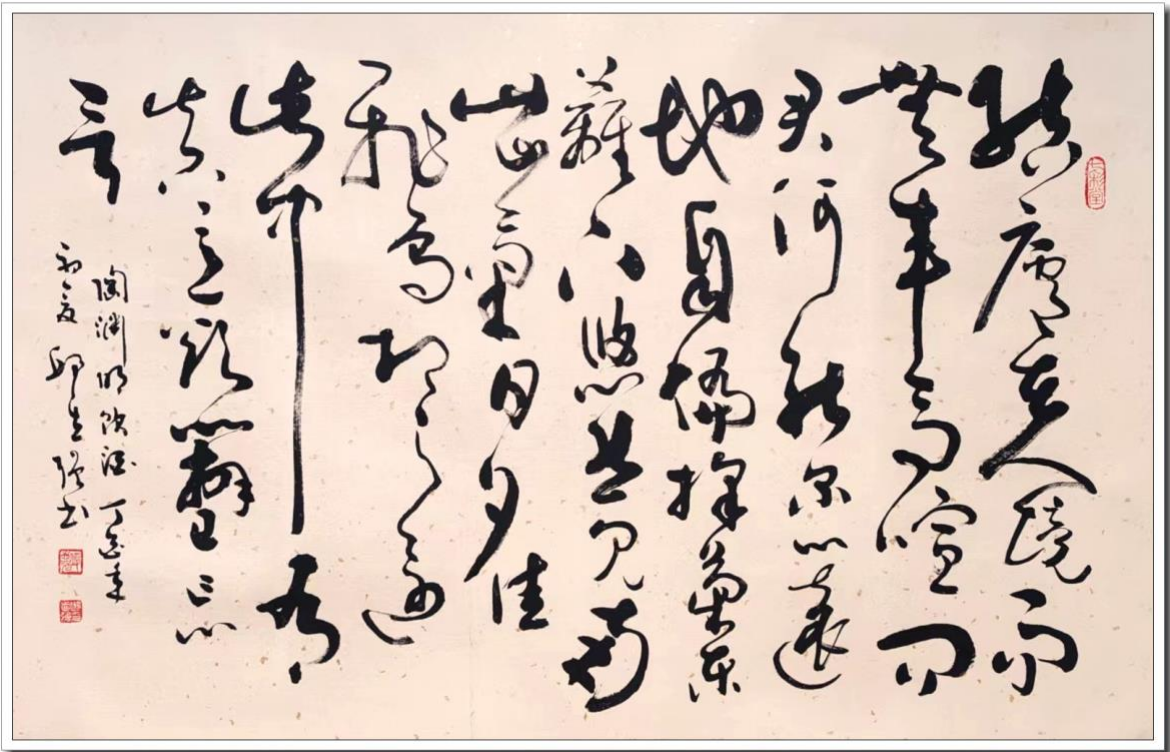 結廬在人境而
無車馬喧問
君何能尔心遠
地自偏採菊東
籬下悠然見南
山山氣日夕佳
飛鳥相與還
此中有
真意欲辯已忘
言
陶淵明飲酒 丁亥年
初夏 书